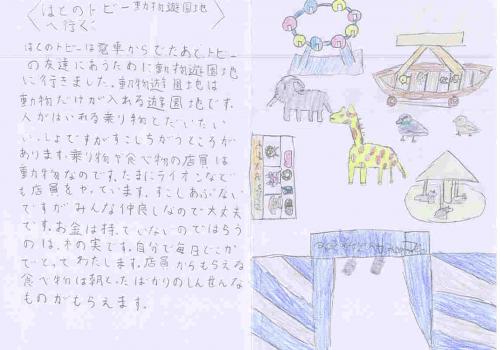 はとのトビー動物遊園地
へ行く:
はとのトビーは電車からでたあと、トビー
の友達にあうために動物遊園地
に行きました。動物遊園地は
動物だけが入れる遊園地です。
人がはいれる乗り物とだいたい
いっしょですがすこしちがうところが
あります。乗り物や食べ物の店員は
動物なのです。たまにライオンなど
も店員をやっています。すこしあぶない
ですがみんな仲良しなので大丈夫
です。お金は持っていないのではらう
のは、木の実です。自分で毎日どこか
でとってわたします。店員からもらえる
食べ物は朝とったばかりのしんせんな
ものがもらえます。